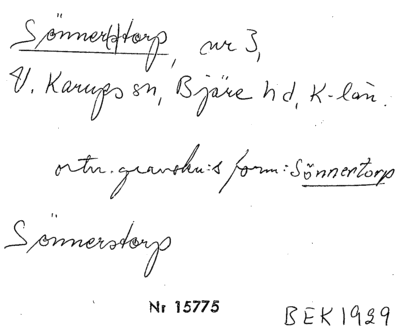 Sönner(s)torp, nr 3,
V. Karups sn, Bjäre hd, K-län.
ortn.granskn:s form: Sönnertorp
Sönnerstorp
Nr 15775 BEK1929